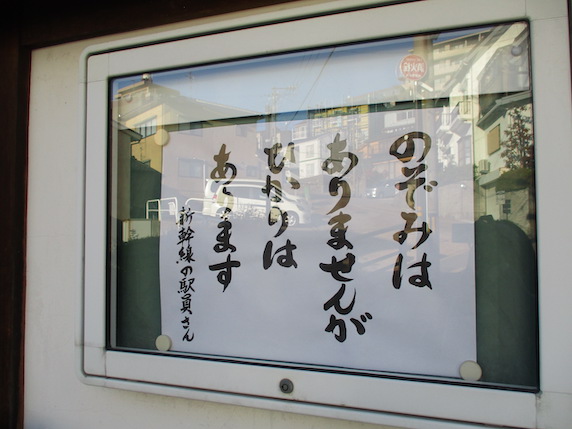 のぞみは
ありませんが
ひかりは
あります
新幹線の駅員さん
消火栓